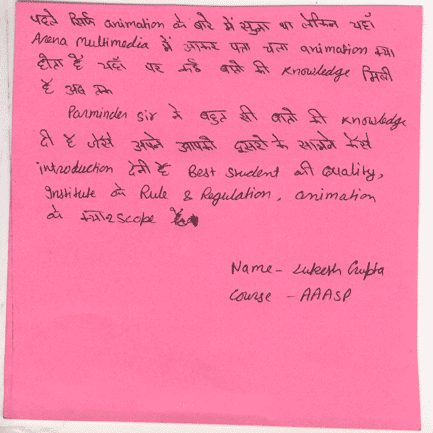 पहले सिर्फ animation के बारे में सुना था लेकिन यहाँ
Arena Multimedia में आकर पता चला animation क्या
होता है यहाँ पर कई बातो की knowledge मिली
है अब तक
Parminder sir ने बहुत सी बातो की knowledge
दी है जैसे अपने आपको दूसरो के सामने कैसे
introduction देनी है Best student की quality,
Institute के Rule & Regulation, animation
के क्या scope है
Name - Lukesh Gupta
Course - AAASP